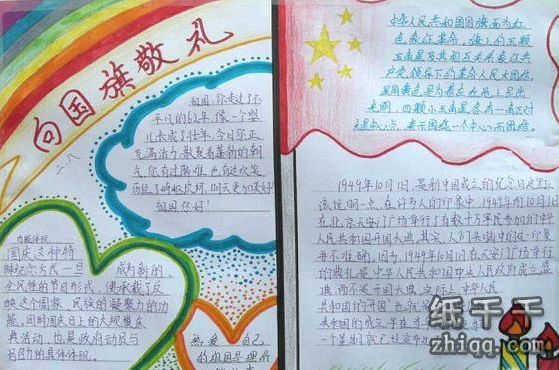 向国旗敬礼
二八
祖国,你走过了不
平凡的61年,像一个婴
儿长成了壮年,今日你正
充满活力,散发着蓬勃的朝
气,你有过磨难,也有过欢笑
历经了崎岖坎坷,明天更加美好
祖国,您好!
功能体现
国庆这种特
殊纪念方式一旦 成为新的、
全民性的节日形式,便承载了反
映这个国家、民族的凝聚力的功
能。同时国庆日上的大规模庆
典活动,也是政府动员与
号召力的具体体现。
热爱 自己
的祖国是理所
中华人民共和国国旗面为红
色象征革命,旗上的五颗
五角星及其相互关系象征共
产党领导下的革命人民大团结,
星用黄色是为着在红地上显出
光明,四颗小五角星各有一尖正对
大星中心点,表示围绕一个中心而团结
1949年10月1日,是新中国成立的纪念日,这里
应说明一点,在许多人的印象中,1949年的10月1日
在北京天安门广场举行了有数十万军民参加的中华
人民共和国开国大典。其实,人们头脑中的这一印象
并不准确。因为,1949年10月1日在天安门广场举行
的典礼是中华人民共和国中央人民政府成立盛
典,而不是开国大典。实际上,中华人民
共和国的“开国”,也就
共和国的成立,早在
一个星期就已经宣布
纸千千
zhiqq.com